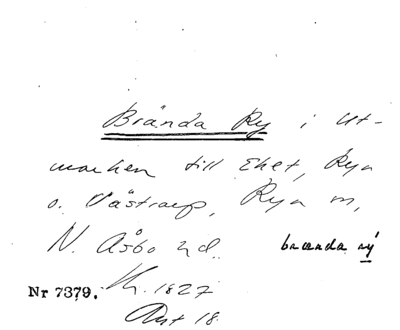 Brända Ry i Ut-
marken till Eket, Rya
o. Västrarp, Rya m,
N. Åsbo hd. braanda rý
Nr 7379. Kr. 1827
Akt 18.